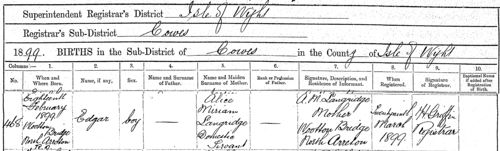 Superintendent Registrar's District Isle of Wight
Registrar's Sub-District Cowes
1899. BIRTHS in the Sub-District of Cowes in the County of Isle of Wight
Columns :— 1. 2. 3. 4. 5. 6. 7. 8. 9. 10.
No. When and Where Born. Name, if any. Sex. Name and Surname of Father. Name and Maiden Surname of Mother. Rank or Profession of Father. Signature, Description, and Residence of Informant. When Registered. Signature of Registrar. Baptismal Name if added after Registration of Birth.
468 Eighteenth February 1899 Wootton Bridge North Arreton
Edgar
boy
Alice Miriam Langridge Domestic Servant
A. M. Langridge Mother Wootton Bridge North Arreton
Seventeenth March 1899
H. Griffin Registrar